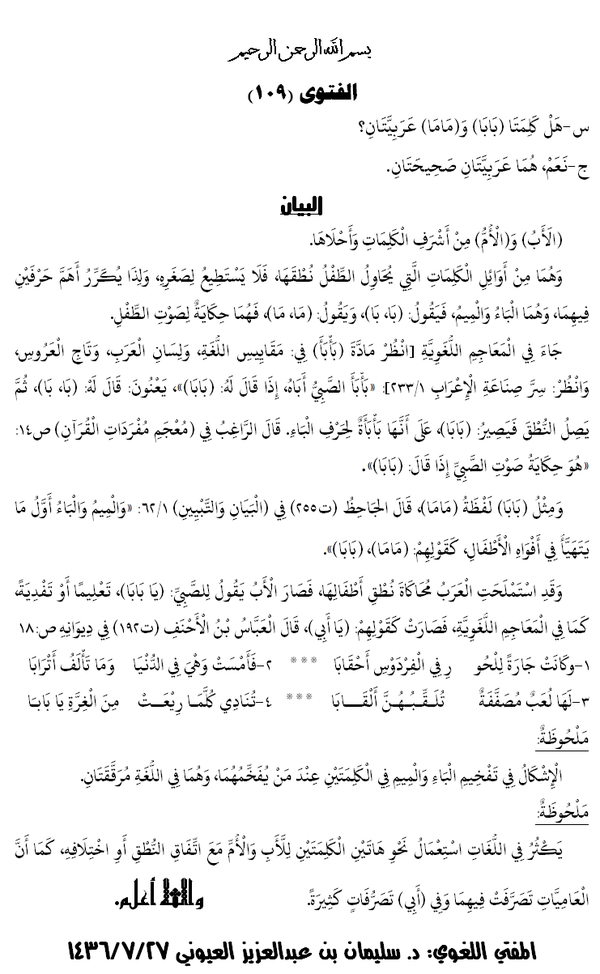 بسم الله الرحمن الرحيم
الفتوى (١٠٩)
س-هَلْ كَلِمَتَا (بَابَا) وَ(مَامَا) عَرَبِيَّتَانِ؟
ج-نَعَمْ، هُمَا عَرَبِيَّتَانِ صَحِيحَتَانِ.
البيان
(الْأَبُ) وَ(الْأُمُّ) مِنْ أَشْرَفِ الْكَلِمَاتِ وَأَحْلَاهَا.
وَهُمَا مِنْ أَوَائِلِ الْكَلِمَاتِ الَّتِي يُحَاوِلُ الطِّفْلُ نُطْقَهَا، فَلَا يَسْتَطِيعُ لِصِغَرِهِ، وَلِذَا يُكَرِّرُ أَهَمَّ حَرْفَيْنِ
فِيهِمَا، وَهُمَا الْبَاءُ وَالْمِيمُ، فَيَقُولُ: (بَا، بَا)، وَيَقُولُ: (مَا، مَا)، فَهُمَا حِكَايَةٌ لِصَوْتِ الطِّفْلِ.
جَاءَ فِي الْمَعَاجِمِ اللُّغَوِيَّةِ [انْظُرْ مَادَّةَ (بَأْبَأَ) فِي: مَقَايِيسِ اللُّغَةِ، وَلِسَانِ الْعَرَبِ، وَتَاجِ الْعَرُوسِ،
وَانْظُرْ: سِرَّ صِنَاعَةِ الْإِعْرَابِ ٢٣٣/١]: «بَأْبَأَ الصَّبِيُّ أَبَاهُ، إِذَا قَالَ لَهُ: (بَابَا)»، يَعْنُونَ: قَالَ لَهُ: (بَا، بَا)، ثُمَّ
يَصِلُ النُّطْقَ فَيَصِيرُ: (بَابَا)، عَلَى أَنَّهَا بَأْبَأَةٌ لِحَرْفِ الْبَاءِ. قَالَ الرَّاغِبُ فِي (مُعْجَمِ مُفْرَدَاتِ الْقُرْآنِ) ص١٤:
«هُوَ حِكَايَةُ صَوْتِ الصَّبِيِّ إِذَا قَالَ: (بَابَا)».
وَمِثْلُ (بَابَا) لَفْظَةُ (مَامَا)، قَالَ الْجَاحِظُ (ت٢٥٥) فِي (الْبَيَانِ وَالتَّبْيِينِ) ٦٢/١: «وَالْمِيمُ وَالْبَاءُ أَوَّلُ مَا
يَتَهَيَّأُ فِي أَفْوَاهِ الْأَطْفَالِ، كَقَوْلِهِمْ: (مَامَا)، (بَابَا)».
وَقَدِ اسْتَمْلَحَتِ الْعَرَبُ مُحَاكَاةَ نُطْقِ أَطْفَالِهَا، فَصَارَ الْأَبُ يَقُولُ لِلصَّبِيِّ: (يَا بَابَا)، تَعْلِيمًا أَوْ تَفْدِيَةً،
كَمَا فِي الْمَعَاجِمِ اللُّغَوِيَّةِ، فَصَارَتْ كَقَوْلِهِمْ: (يَا أَبِي)، قَالَ الْعَبَّاسُ بْنُ الْأَحْنَفِ (ت١٩٢) فِي دِيوَانِهِ ص:١٨
١-وَكَانَتْ جَارَةً لِلْحُو رِ فِي الْفِرْدَوْسِ أَحْقَابَا *** ٢-فَأَمْسَتْ وَهْيَ فِي الدُّنْيَا وَمَا تَأْلَفُ أَتْرَابَا
٣-لَهَا لُعَبٌ مُصَفَّفَةٌ تُلَقِّبُهُنَّ أَلْقَابَا *** ٤-تُنَادِي كُلَّمَا رِيعَتْ مِنَ الْغِرَّةِ يَا بَابَا
مَلْحُوظَةٌ:
الْإِشْكَالُ فِي تَفْخِيمِ الْبَاءِ وَالْمِيمِ فِي الْكَلِمَتَيْنِ عِنْدَ مَنْ يُفَخِّمُهُمَا، وَهُمَا فِي اللُّغَةِ مُرَقَّقَتَانِ.
مَلْحُوظَةٌ:
يَكْثُرُ فِي اللُّغَاتِ اسْتِعْمَالُ نَحْوِ هَاتَيْنِ الْكَلِمَتَيْنِ لِلْأَبِ وَالْأُمِّ مَعَ اتِّفَاقِ النُّطْقِ أَوِ اخْتِلَافِهِ، كَمَا أَنَّ
الْعَامِّيَّاتِ تَصَرَّفَتْ فِيهِمَا وَفِي (أَبِي) تَصَرُّفَاتٍ كَثِيرَةً. والله أعلم.
المفتي اللغوي: د. سليمان بن عبدالعزيز العيوني ١٤٣٦/٧/٢٧